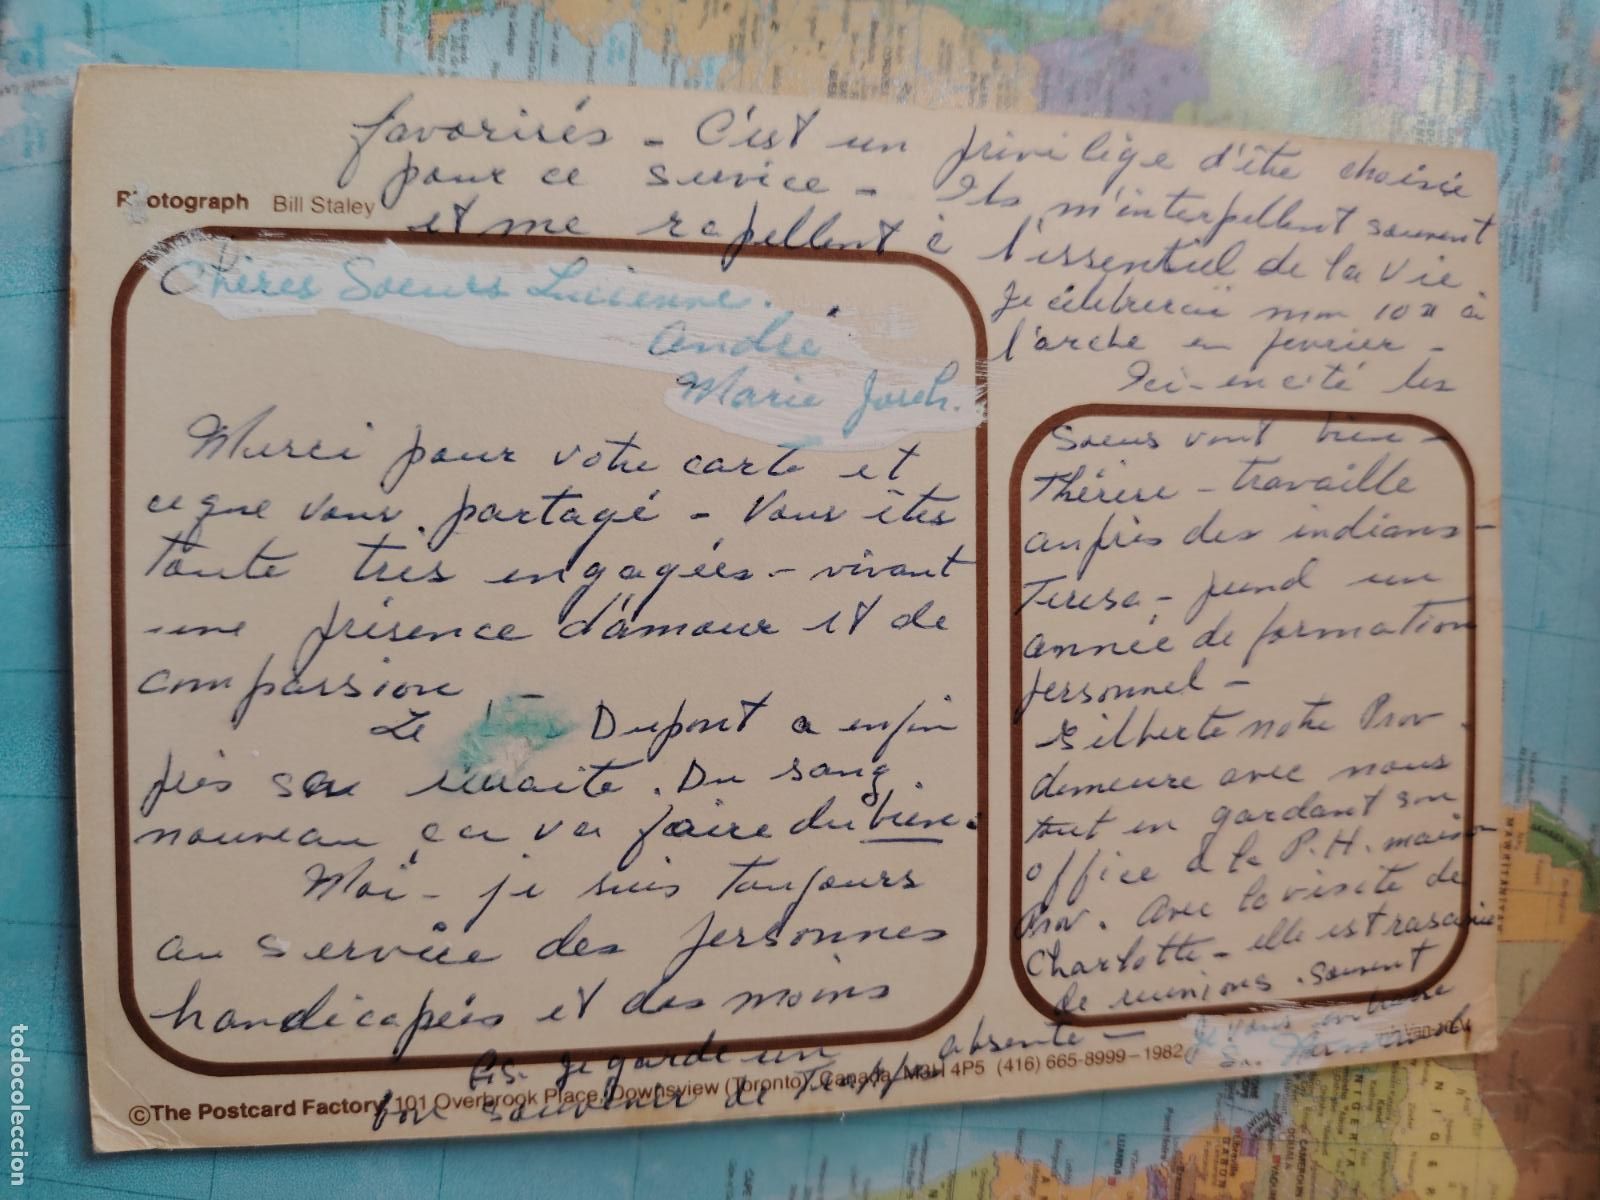 Photograph Bill Staley
Chères Soeurs Lucienne.
André
Marie Joseh.
Merci pour votre carte et
ce que vous partagé - Vous êtes
toute très engagées - vivant
une présence d'amour et de
compassion -
Le Dupont a enfin
pris sa retraite. Du sang
nouveau ça va faire du bien.
Moi - je suis toujours
au service des personnes
handicapées et des moins
favorisés - C'est un privilège d'être choisie
pour ce service - Ils m'interpellent souvent
et me rapellent à l'essentiel de la vie
Je célébrerai mon 10e à
l'arche en fevrier -
Ici - en cité les
Soeurs vont bien -
Thérèse - travaille
auprès des indians -
Teresa - prend un
année de formation
personnel -
Gilberte notre Prov.
demeure avec nous
tout en gardant son
office à la P.H. maison
Prov. Avec la visite de
Charlotte - elle est
de réunions. souvent
absente - Je vous embrasse
Sr.
P.S. Je garde un
bon souvenir de
©The Postcard Factory, 101 Overbrook Place, Downsview (Toronto), Canada, M3H 4P5 (416) 665-8999-1982
todocoleccion